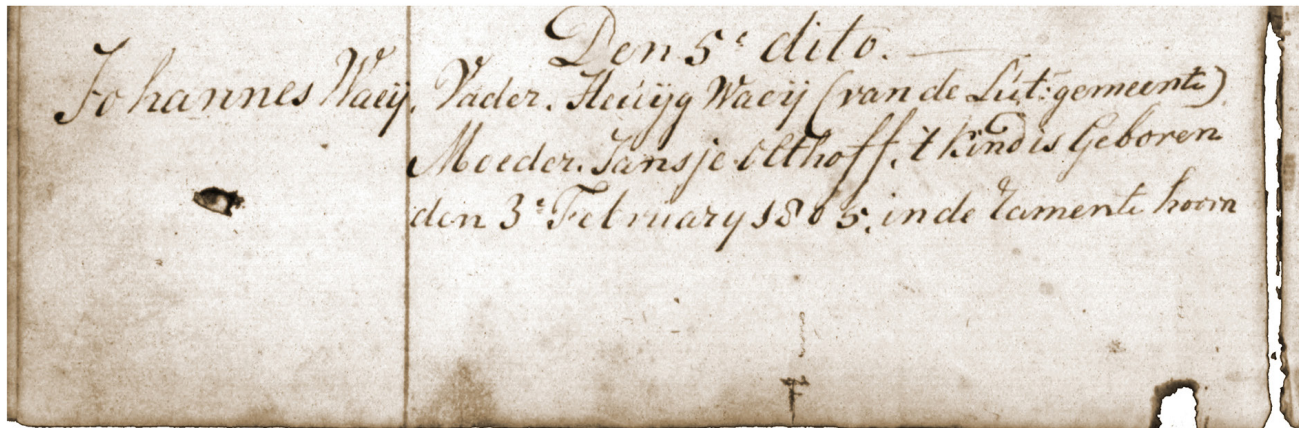 Den 5ᵉ dito.
Johannes Waeij. Vader. Heuijg Waeij (van de Lut: gemeente)
Moeder. Jansje Olthoff. 't kind is Geboren
den 3ᵉ February 1805. in de Ramente hoorn